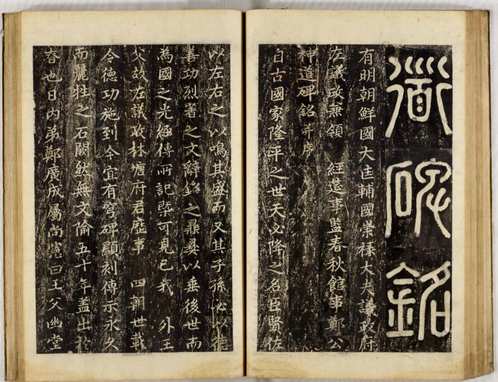 道碑銘
有明朝鮮國大匡輔國崇祿大夫議政府
左議政兼領 經筵事監春秋館事鄭公
神道碑銘并序
自古國家隆平之世天必降之名臣賢佐
以左右之以鳴其盛而又其子孫必以
善功烈著之文辭銘之鼎彝以垂後世而
為國之光經傳所記可見已我 外王
父故左議政林塘府君歷事 四朝世載
令德功施到今宜有穹碑顯刻傳示永久
而麗牲之石闕然無文五十年蓋出於
也日內弟鄭廣成屬尚憲曰王父幽堂